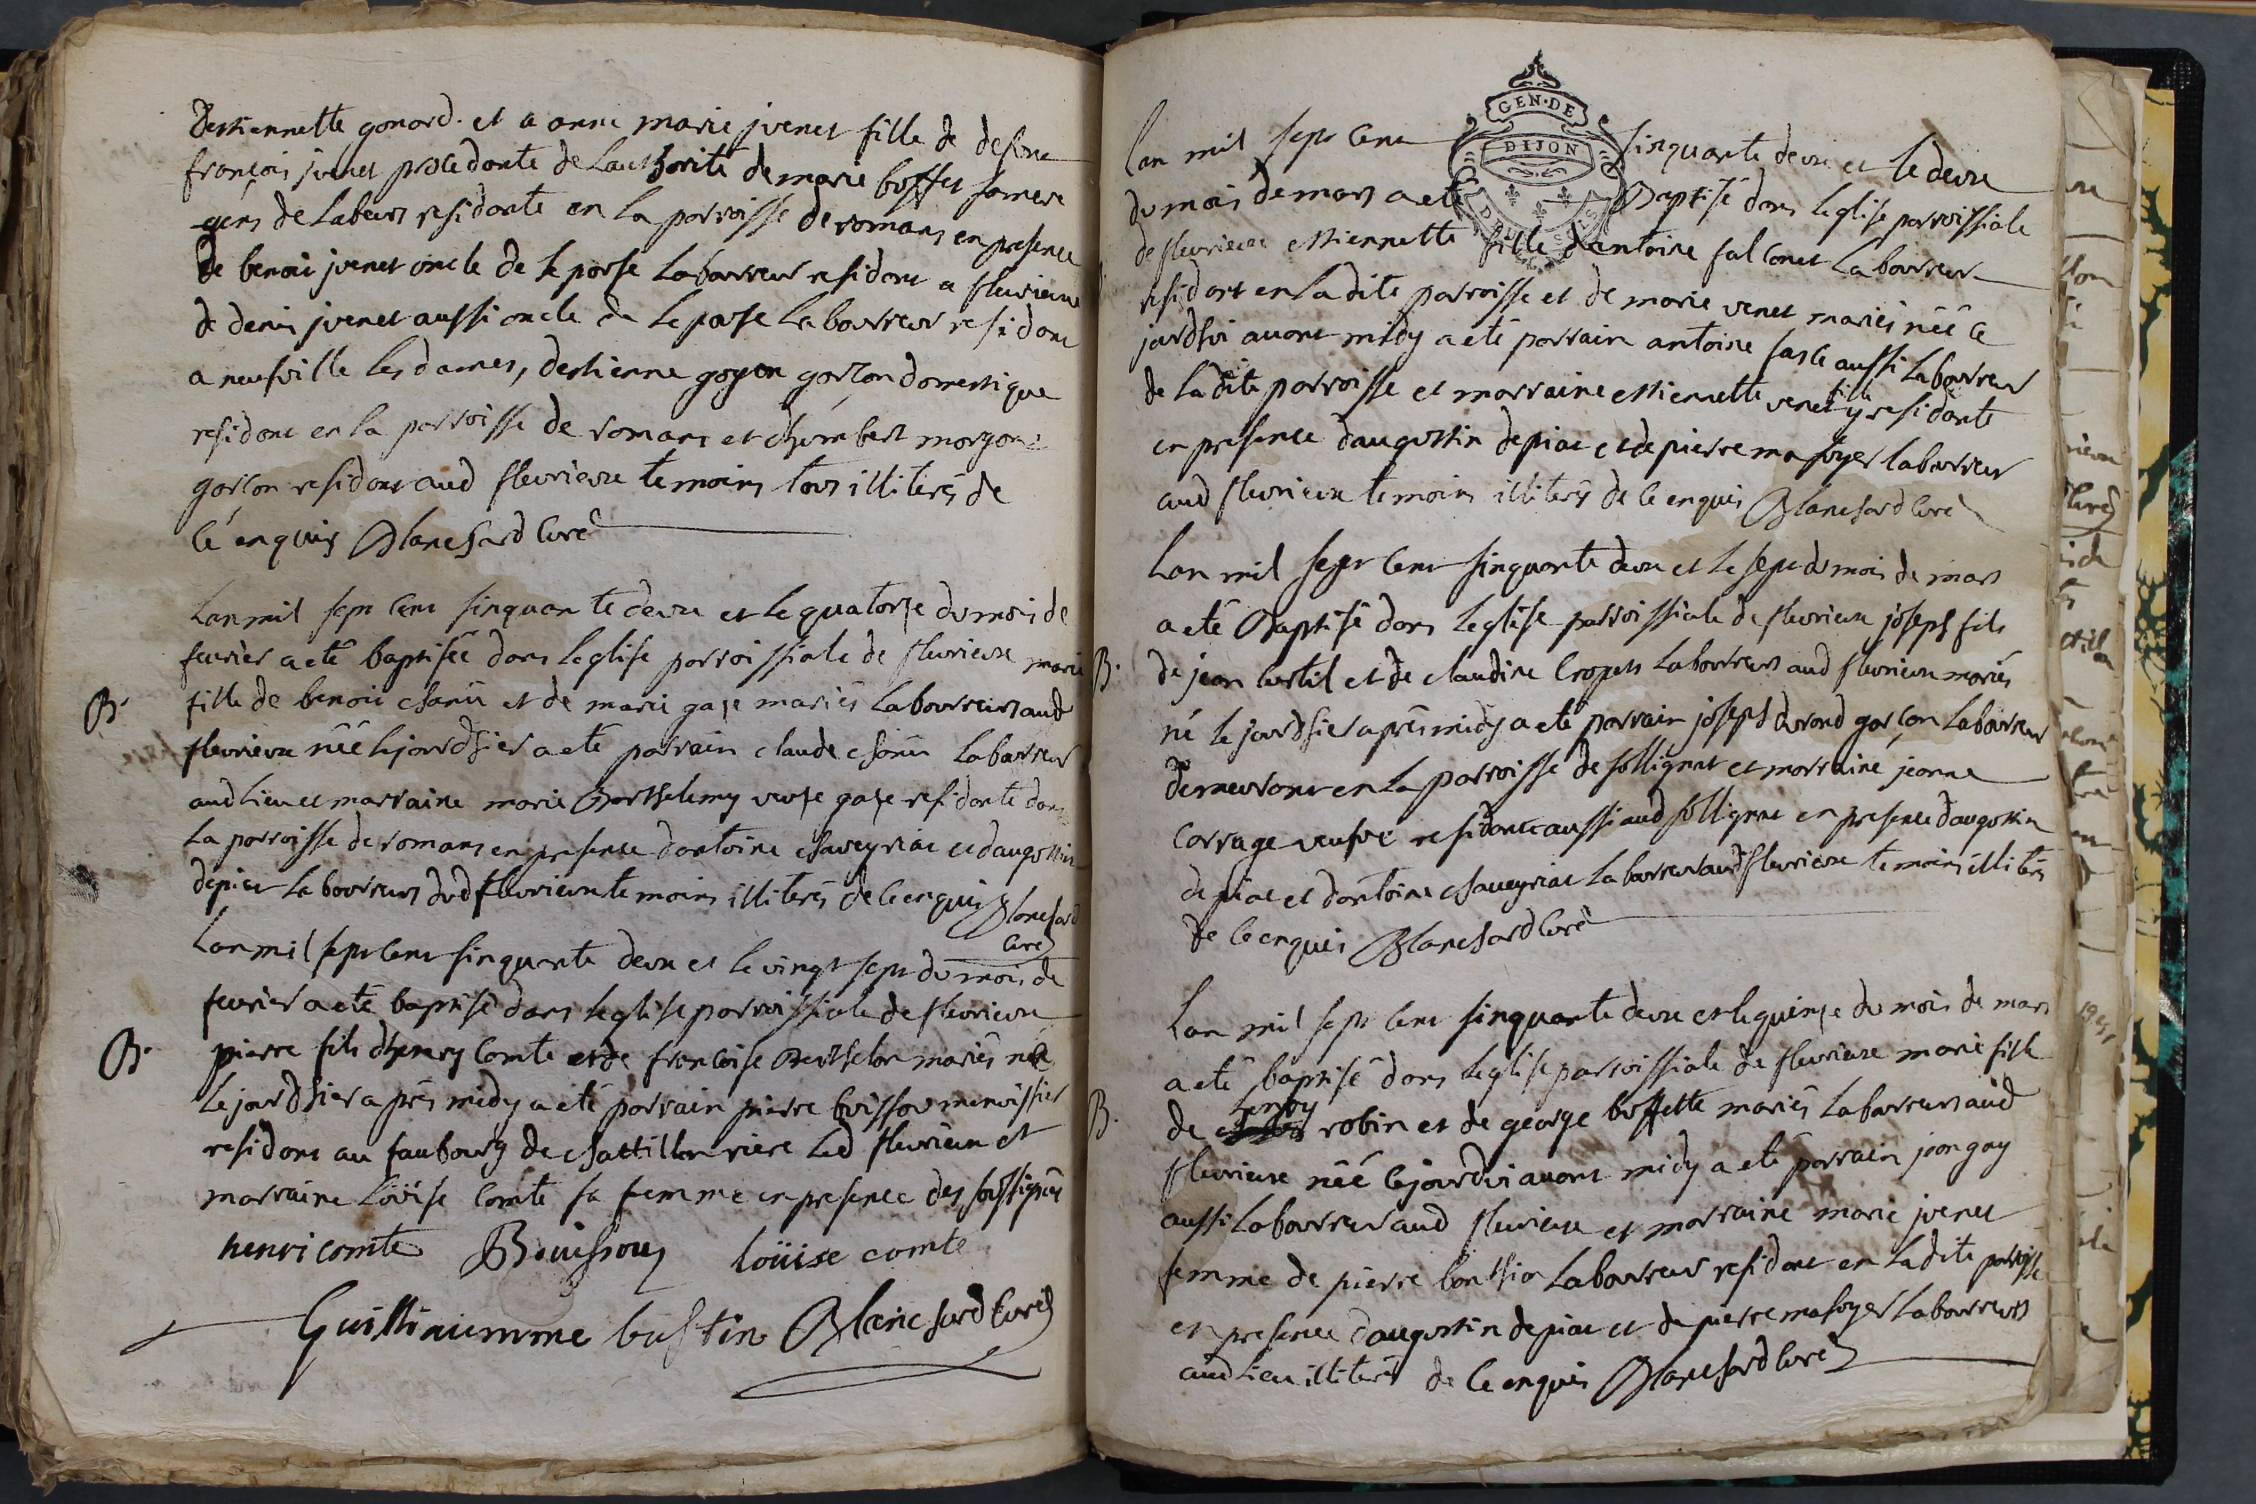 destiennette gonard. et a anne marie juenet fille de defunc
françois juenet procedante de Lauthorité de marie buffet sa mere
gens de Labeurs residante en la parroisse de romans en presence
de benoit juenet oncle de Lepouse Laboureur residant a fleurieux
de denis juenet aussi oncle de Lepouse Laboureur residant
a neufville les dames, destienne goyon garçon domestique
residant en la parroisse de romans et dhumbert morgon
garçon residant aud fleurieux temoins tous illiterés de
ce enquis Blanchard Curé
Lan mil sept cent sinquante deux et le quatorze du mois de
feurier a eté baptisée dans leglise parroissiale de fleurieux marie
B. fille de benoit chanu et de marie gaze mariés Laboureurs aud
fleurieux néé le jourdhier a eté parrain claude chanu Laboureur
aud Lieu et marraine marie Barthelemy veuve gaze residante dans
La parroisse de romans en presence dantoine chaveyriac et daugustin
depiat Laboureurs dud fleurieux temoins illiterés de ce enquis Blanchard
Curé
Lan mil sept cent sinquante deux et le vingt sept du mois de
feurier a eté baptisé dans leglise parroissiale de fleurieux
B. pierre fils dhenry Comte et de françoise Berthelon mariés né
Le jourdhier aprés midy a eté parrain pierre buisson menuissier
residant au faubourg de chattillon riere Led fleurieux et
marraine Loüise Comte sa femme en presence des soussignés
henri comte Bouisson loüise comte
Guillinimme bustin Blanchard Curé
GEN. DE
DIJON
Lan mil sept cent sinquante deux et le deux
du mois de mars a eté Baptisé dans leglise parroissiale
de fleurieux estiennette fille dantoine falconet Laboureur
residant en La dite parroisse et de marie venet mariés néé ce
jourdhui avant midy a eté parrain antoine farle aussi Laboureur
de La dite parroisse et marraine estiennette venet fille y residante
en presence daugustin depiat et de pierre masoyer laboureur
aud fleurieux temoins illiterés de ce enquis Blanchard Curé
Lan mil sept cent sinquante deux et le sept du mois de mars
a eté Baptisé dans leglise parroissiale de fleurieux joseph fils
B. de jean curtil et de claudine Cropet Laboureurs aud fleurieux mariés
né le jourdhier aprés midy a eté parrain joseph durand garçon Laboureur
demeurant en La parroisse de sollignat et marraine jeanne
Carrage veufve residante aussi aud sollignat en presence daugustin
depiat et dantoine chaveyriat Laboureur aud fleurieux temoins illiterés
de ce enquis Blanchard Curé
Lan mil sept cent sinquante deux et le quinze du mois de mars
a eté baptisé dans leglise parroissiale de fleurieux marie fille
B. de henry robin et de george buffette mariés Laboureurs aud
fleurieux néé cejourdui avant midy a eté parrain jean gay
aussi Laboureur aud fleurieux et marraine marie juenet
femme de pierre bonthion Laboureur residant en La dite parroisse
en presence daugustin depiat et de pierre masoyer Laboureurs
aud Lieu illiterés de ce enquis Blanchard Curé